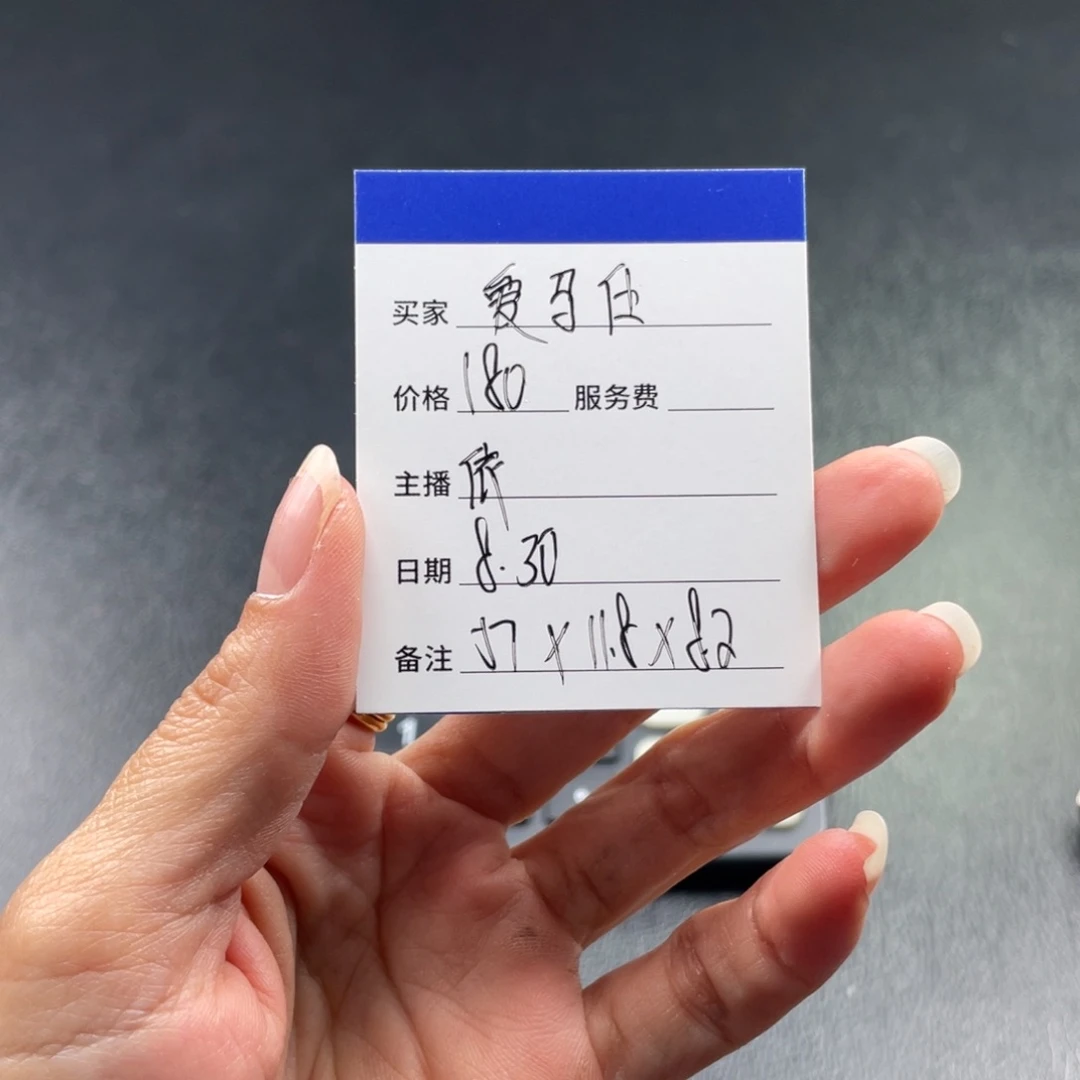 买家 爱马仕
价格 180 服务费
主播 依
日期 8.30
备注 57 x 11.8 x 8.2